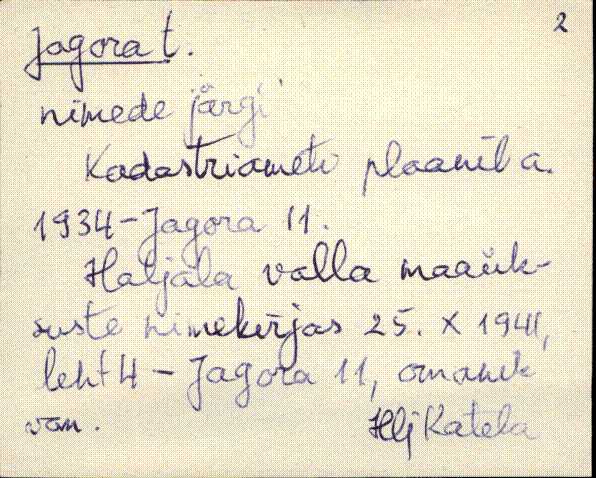 2
Jagora t.
nimede järgi
Kadastriameti plaanil a.
1934 - Jagora 11.
Haljala valla maaük-
suste nimekirjas 25. X 1941,
leht 4 - Jagora 11, omanik
van.
Hlj Katela